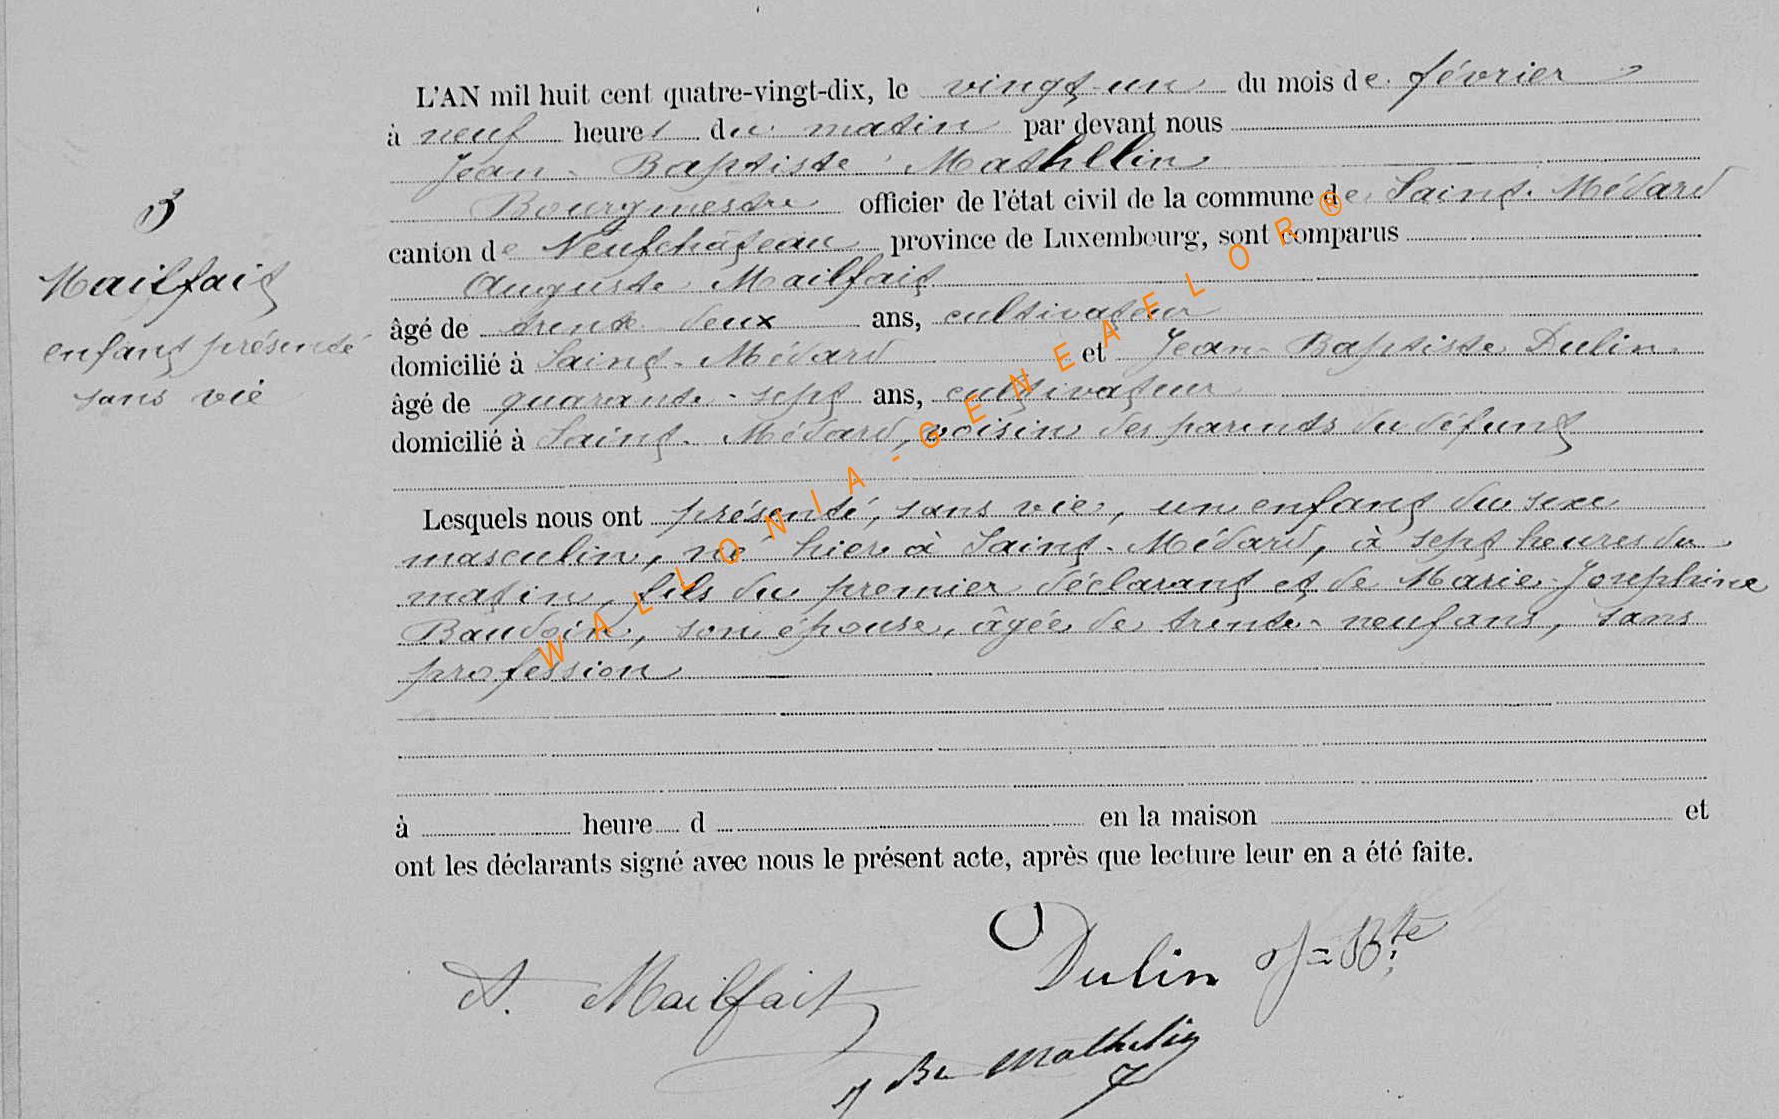 L'AN mil huit cent quatre-vingt-dix, le vingt-un du mois de février
à neuf heures du matin par devant nous
Jean-Baptiste Mathelin
Bourgmestre officier de l'état civil de la commune de Saint-Médard
canton de Neufchâteau province de Luxembourg, sont comparus
Auguste Mailfait
âgé de trente deux ans, cultivateur
domicilié à Saint-Médard et Jean-Baptiste Dulin
âgé de quarante-sept ans, cultivateur
domicilié à Saint-Médard, voisin des parents du défunt
Lesquels nous ont présenté, sans vie, un enfant du sexe
masculin, né hier à Saint-Médard, à sept heures du
matin, fils du premier déclarant et de Marie-Josephine
Baudoin, son épouse, âgée de trente-neuf ans, sans
profession
à heure d en la maison et
ont les déclarants signé avec nous le présent acte, après que lecture leur en a été faite.
3
Mailfait
enfant présenté
sans vie
A. Mailfait
Dulin J=Bte
J Bte Mathelin
WALLONIA-GENEAELOR®